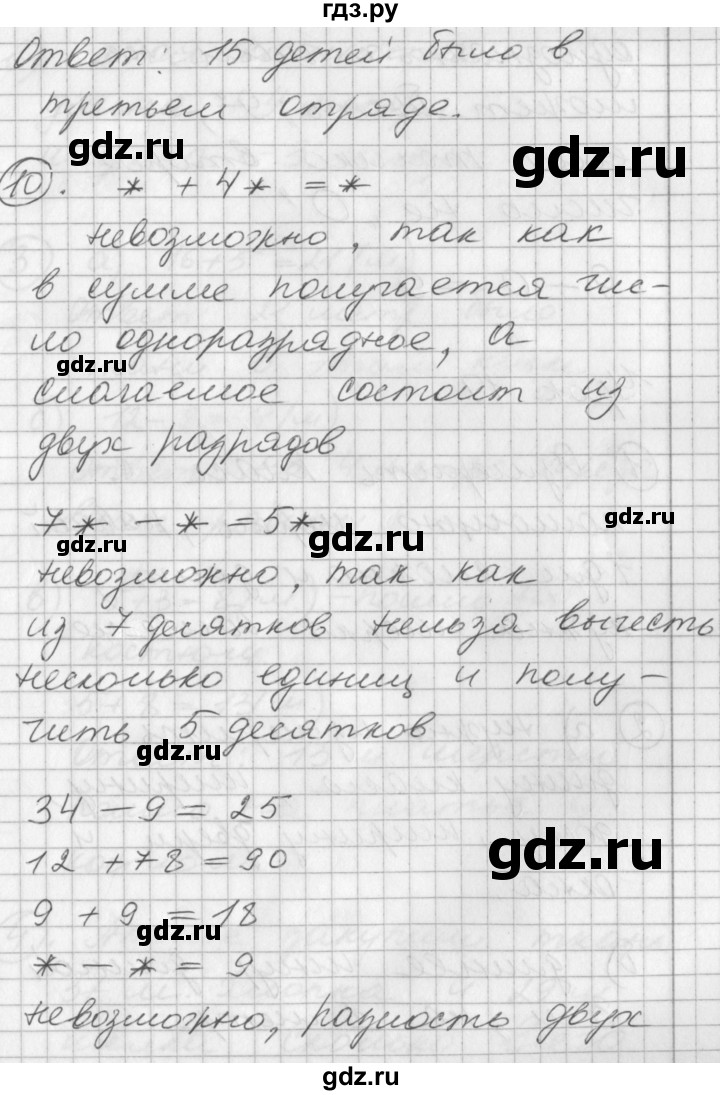 гдз.ру
Ответ: 15 детей было в
третьем отряде.
gdz.ru
gdz.ru
10. * + 4* = *
невозможно, так как
в сумме получается чис-
ло одноразрядное, а
gdz.ru
слагаемое состоит из
двух разрядов
7* - * = 5*
gdz.ru
gdz.ru
gdz.ru
невозможно, так как
из 7 десятков нельзя вычесть
несколько единиц и полу-
чить 5 десятков
gdz.ru
34 - 9 = 25
12 + 78 = 90
gdz.ru
9 + 9 = 18
gdz.ru
* - * = 9
невозможно, разность двух
гдз.ру